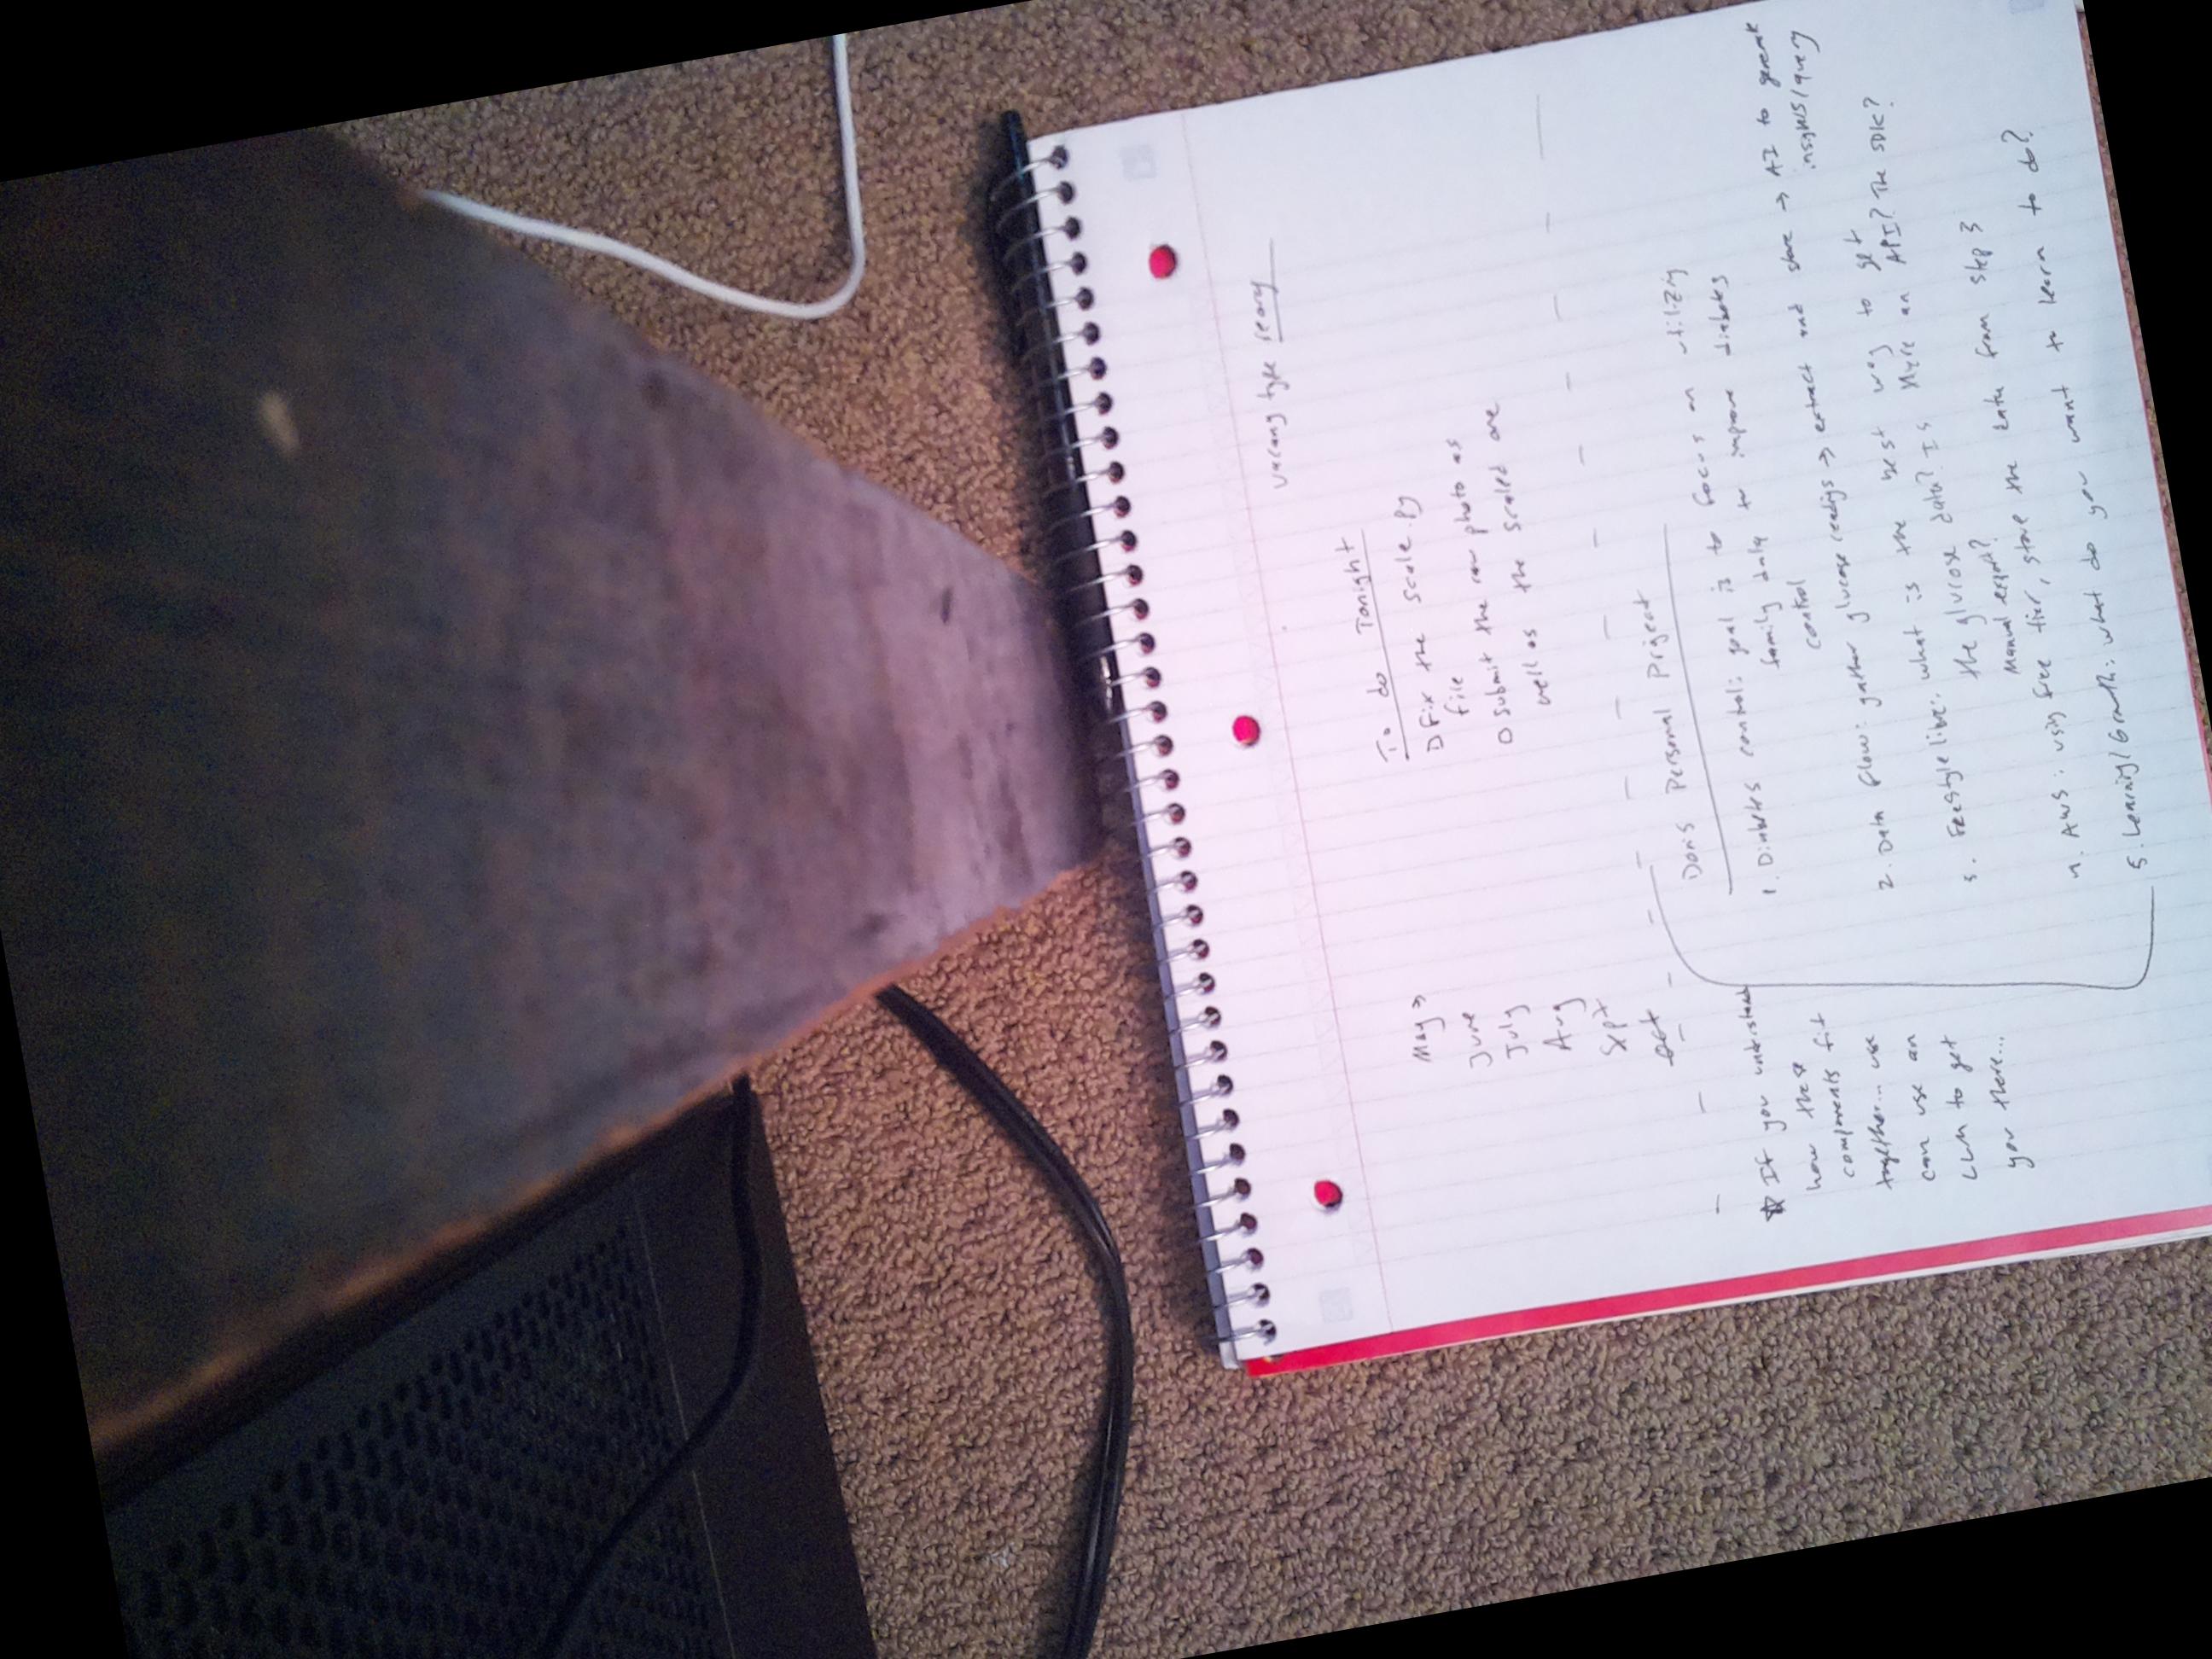 wrong type
To do Tonight
Fix the scale.py
file
Submit the raw photo as
well as the scaled one
May →
June
July
Aug
Sept
Oct
Don's Personal Project
1. Diabetes control: goal is to focus on utilizing
family data to improve diabetes
control
2. Data flow: gather glucose readings → extract and store → AI to generate
insights/query
3. Freestyle libre: what is the best way to get
the glucose data? Is there an API? The SDK?
Manual export?
4. AWS: using free tier, store the data from step 3
5. Learning/Growth: what do you want to learn to do?
☆ If you understand
how these
components fit
together... use
can use an
LLM to get
you there...